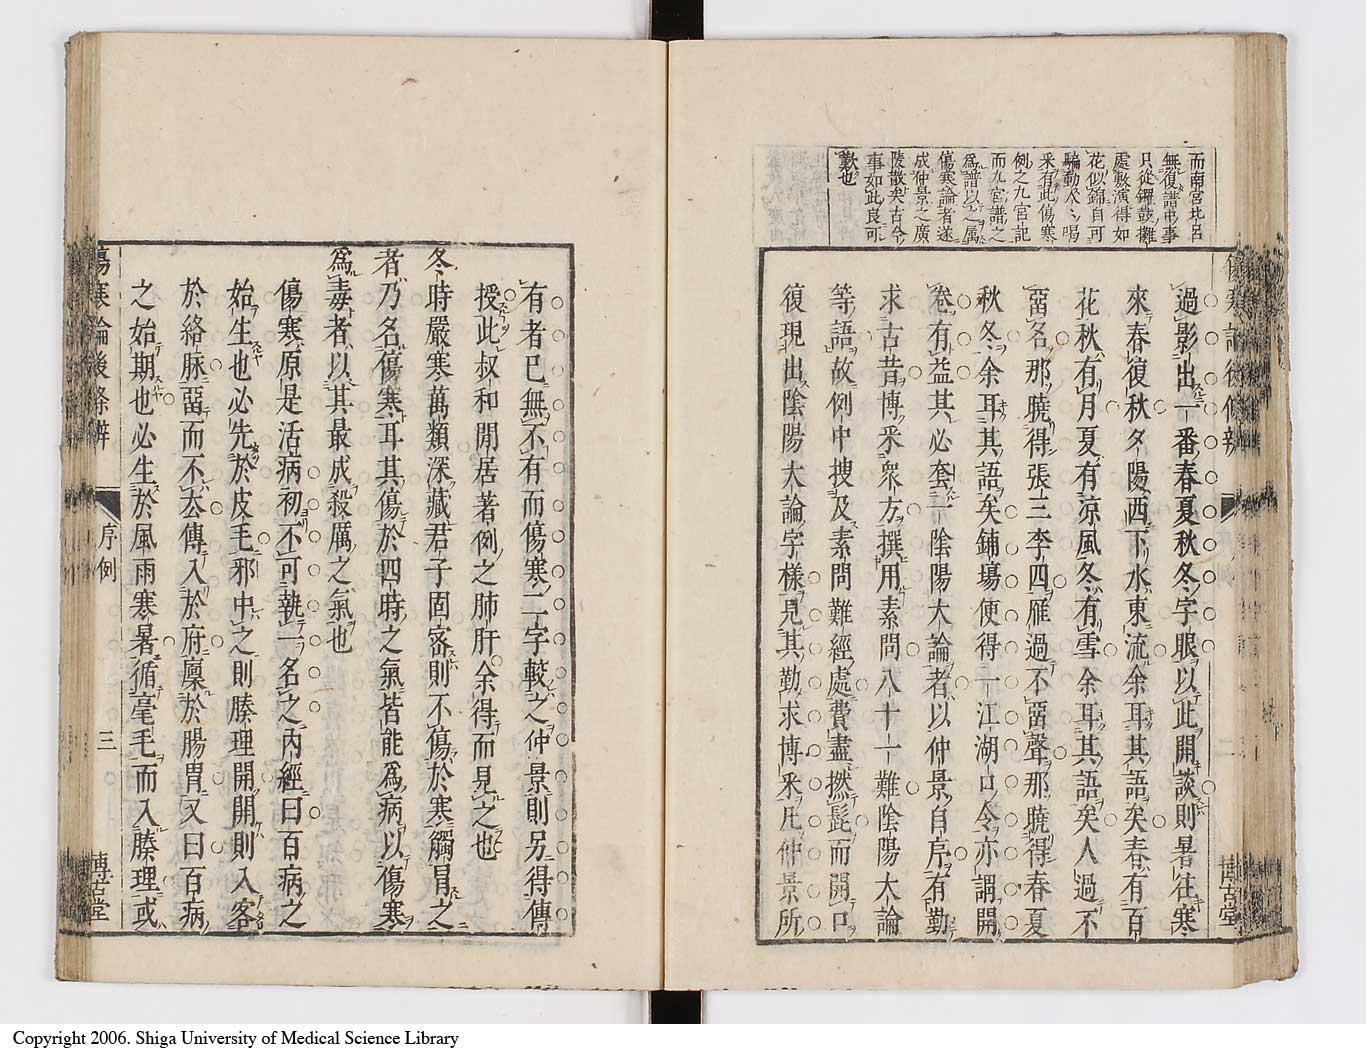 而南宮北呂
無復譜中事
只從鑼鼓攤
處敷演得如
花似錦自可
騙動人〻喝
釆有此傷寒
例之九官記
而九宮譜之
為譜以之属
傷寒論者遂
成仲景之廣
陵散矣古今
事如此良可
歎也
過影出一番春夏秋冬字眼以此開談則暑往寒
來春復秋夕陽西下水東流余耳其語矣春有百
花秋有月夏有涼風冬有雪余耳其語矣人過不
畱名那曉得張三李四雁過不畱聲那曉得春夏
秋冬余耳其語矣鋪塲便得一江湖口令亦謂開
卷有益其必套一陰陽大論者以仲景自序有勤
求古昔博釆衆方撰用素問八十一難陰陽大論
等語故例中搜及素問難經處費盡撚髭而開口
復現出陰陽大論字樣見其勤求博釆凡仲景所
有者已無不有而傷寒二字較之仲景則另得傳
授此叔和閒居著例之肺肝余得而見之也
冬時嚴寒萬類深藏君子固密則不傷於寒觸冒之
者乃名傷寒耳其傷於四時之氣皆能為病以傷寒
為毒者以其最成殺厲之氣也
傷寒原是活病初不可執一名之內經曰百病之
始生也必先於皮毛邪中之則腠理開開則入客
於絡脉畱而不去傳入於府廩於腸胃又曰百病
之始期也必生於風雨寒暑循毫毛而入腠理或
傷寒論後條辨
序例
三
博古堂